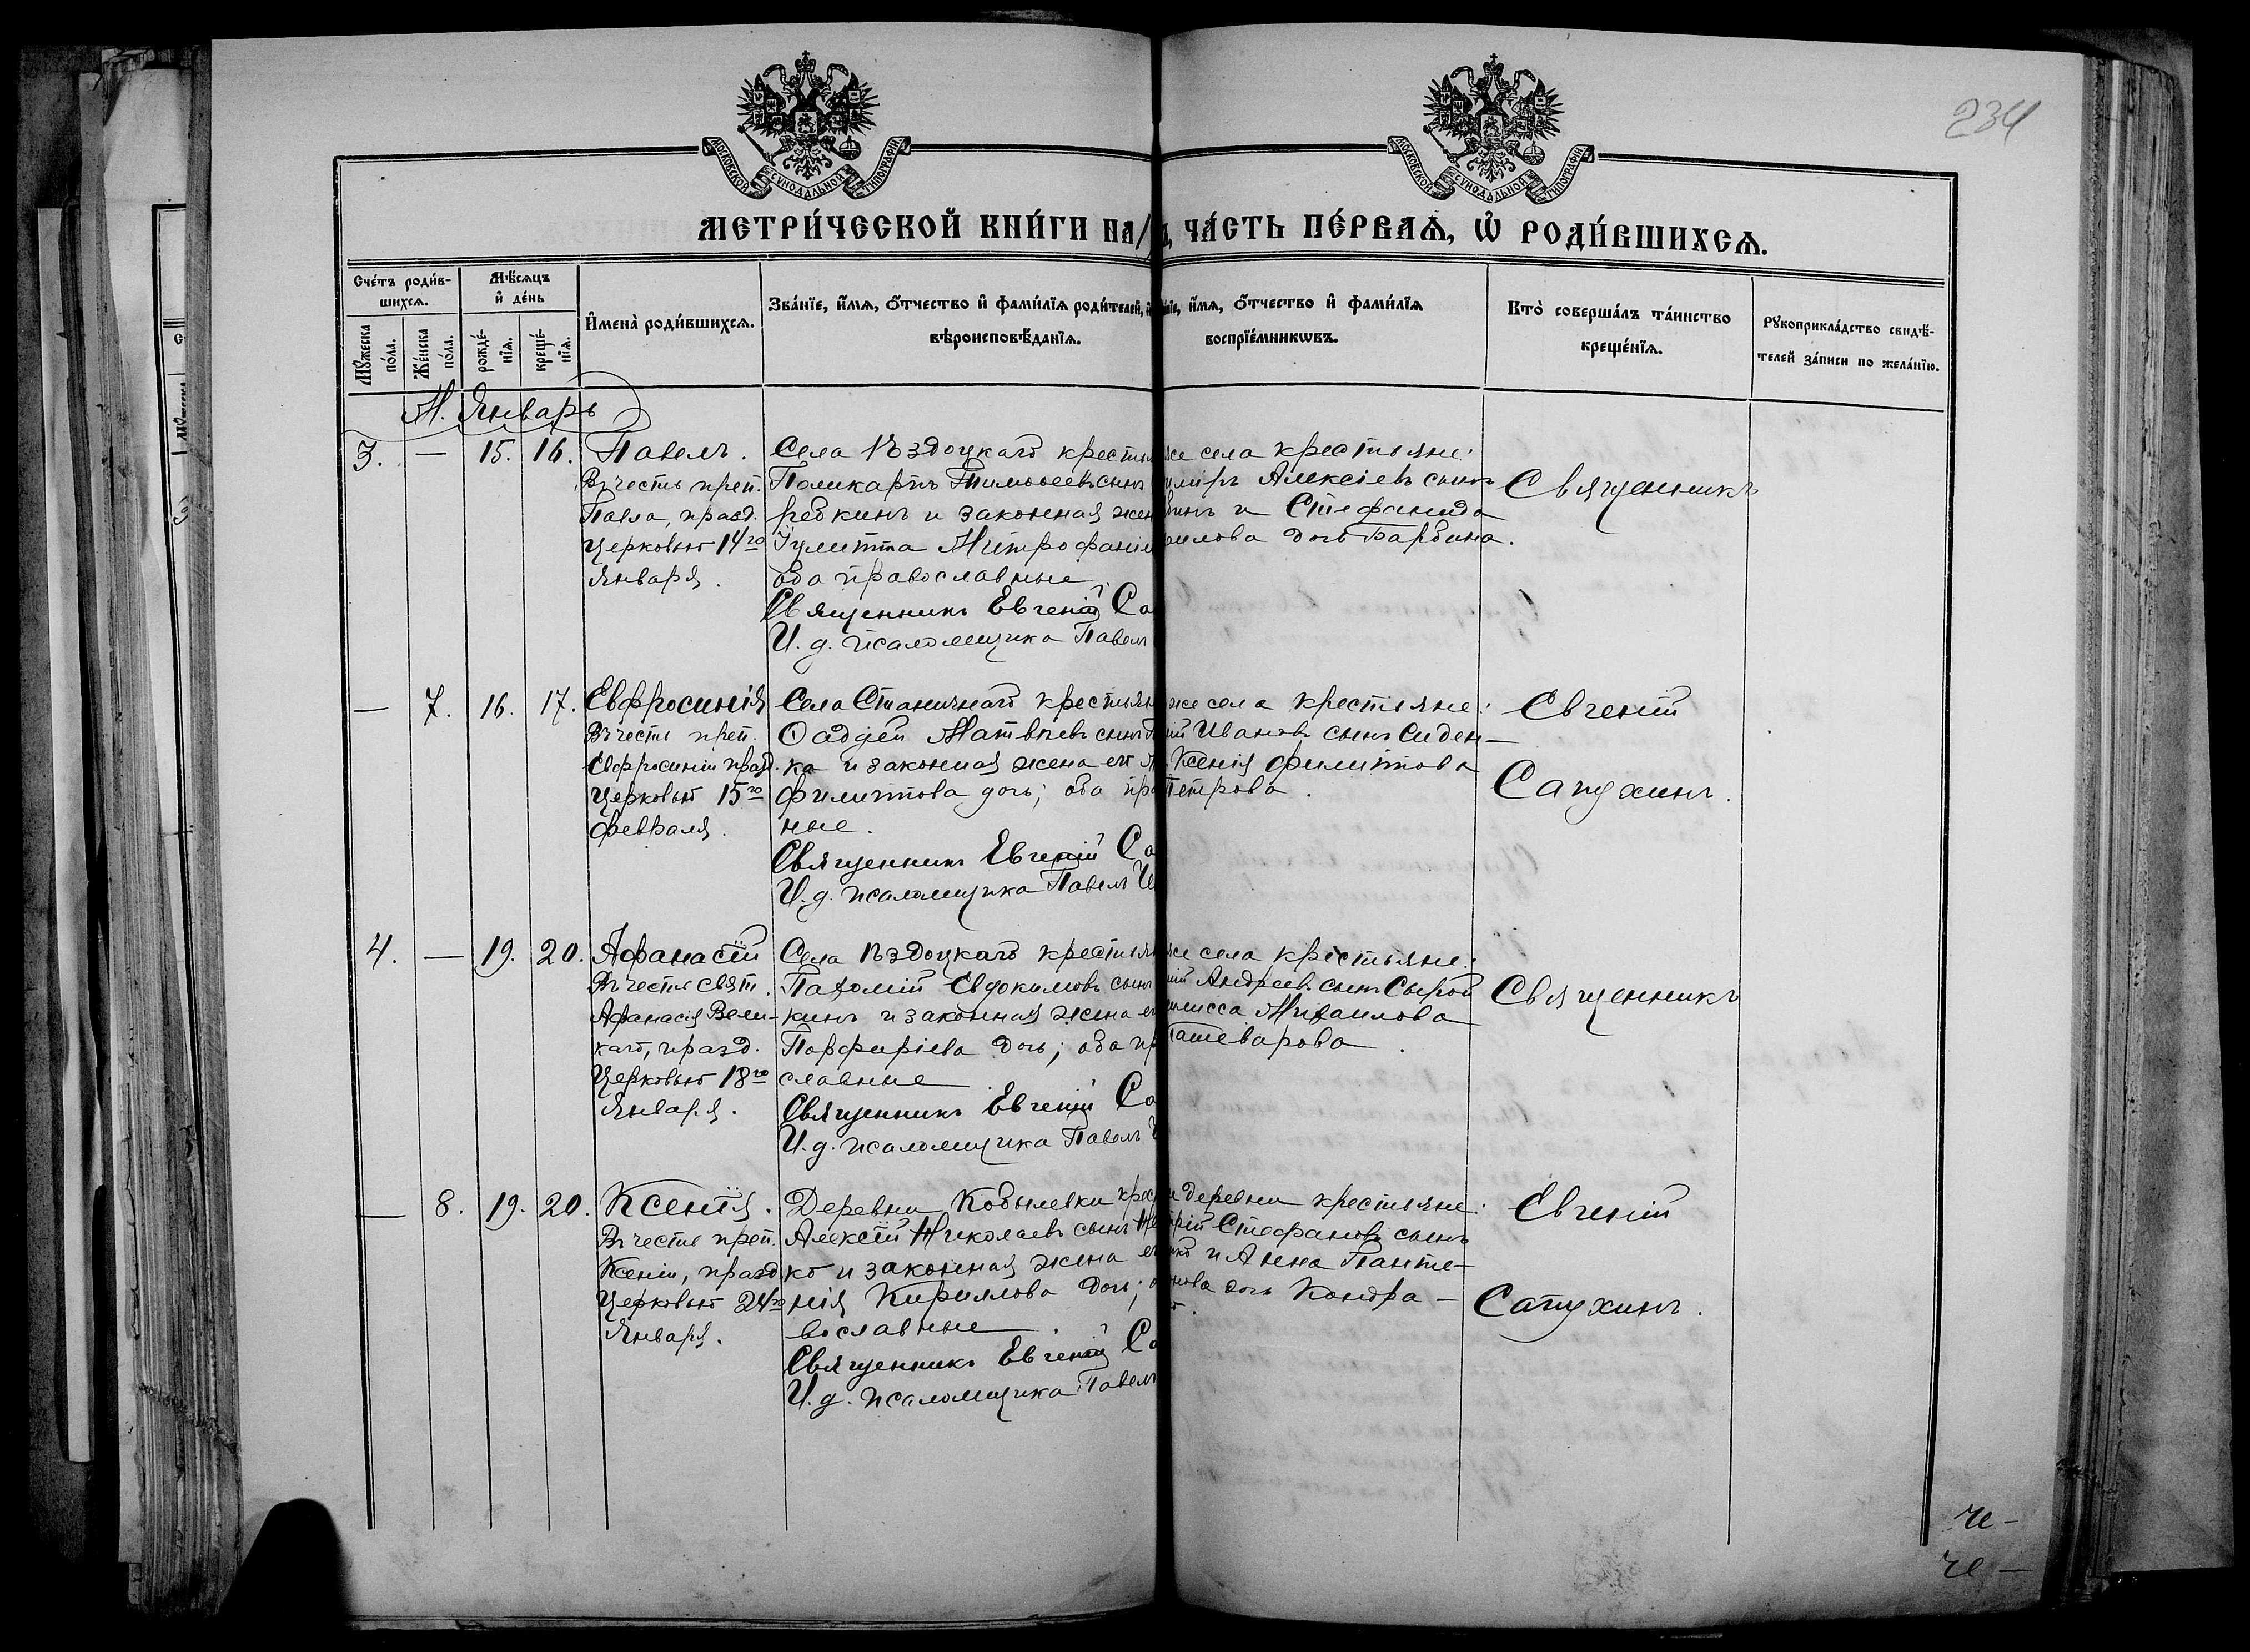 234
МОСКОВСКОЙ СѴНОДАЛЬНОЙ ТИПОГРАФІИ
МОСКОВСКОЙ СѴНОДАЛЬНОЙ ТИПОГРАФІИ
МЕТРИ́ЧЕСКОЙ КНИ́ГИ НА/
ЧА́СТЬ ПЕ́РВАѦ, Ѡ РОДИ́ВШИХСѦ.
Сче́тъ роди́в-
шихсѧ.
Мꙋ́жеска по́ла.
Же́нска по́ла.
Мѣ́сѧцъ
и҆ де́нь
рожде́-
нїѧ.
креще́-
нїѧ.
И҆мена̀ роди́вшихсѧ.
Зва́нїе, и҆́мѧ, ѻ҆́тчество и҆ фами́лїѧ роди́телей, и҆
вѣроисповѣ́данїѧ.
и҆́мѧ, ѻ҆́тчество и҆ фами́лїѧ
воспрїе́мникѡвъ.
Кто̀ соверша́лъ та́инство
креще́нїѧ.
Рꙋкоприкла́дство свидѣ́-
телей за́писи по жела́нїю.
М. Январь
3. — 15. 16.
Павелъ.
Въ честь преп.
Павла, празд.
Церковью 14го
Января.
Села крестья
Поликарпъ Тимоѳеевъ сынъ
редкинъ и законная жен
Іулитта Митрофані
оба православные.
Священникъ Евгеній Са
И. д. псаломщика Павелъ
же села крестьяне:
Алексіевъ сынъ
и Стефанида
дочь Барбина.
Священникъ
— 7. 16. 17.
Евфросинія
Въ честь преп.
Евфросиніи празд.
Церковью 15го
Февраля.
Села Станичнаго крестьян
Ѳаддей Матвѣевъ сынъ
ка и законная жена его
Филиппова дочь; оба пра
ные.
Священникъ Евгеній Са
И. д. псаломщика Павелъ
же села крестьяне:
Ивановъ сынъ Сиден—
Ксенія Филиппова
Петрова.
Евгеній
Сапухинъ.
4. — 19. 20.
Афанасій
Въ честь свят.
Афанасія Вели-
каго, празд.
Церковью 18го
Января.
Села крестьян
Пахомій Евдокимовъ сынъ
кинъ и законная жена е
Порфиріева дочь; оба пр
славные
Священникъ Евгеній Са
И. д. псаломщика Павелъ
же села крестьяне:
Андреевъ сынъ Сырой
Михаилова
Священникъ
— 8. 19. 20.
Ксенія.
Въ честь преп.
Ксеніи, празд.
Церковью 24го
Января.
Деревни Кобылевки крес
Алексій Николаевъ сынъ
ко и законная жена ег
нія Кириллова дочь; о
вославные.
Священникъ Евгеній Са
И. д. псаломщика Павелъ
деревни крестьяне:
Стефановъ сынъ
и Анна Панте-
дочь Кондра-
Евгеній
Сапухинъ.